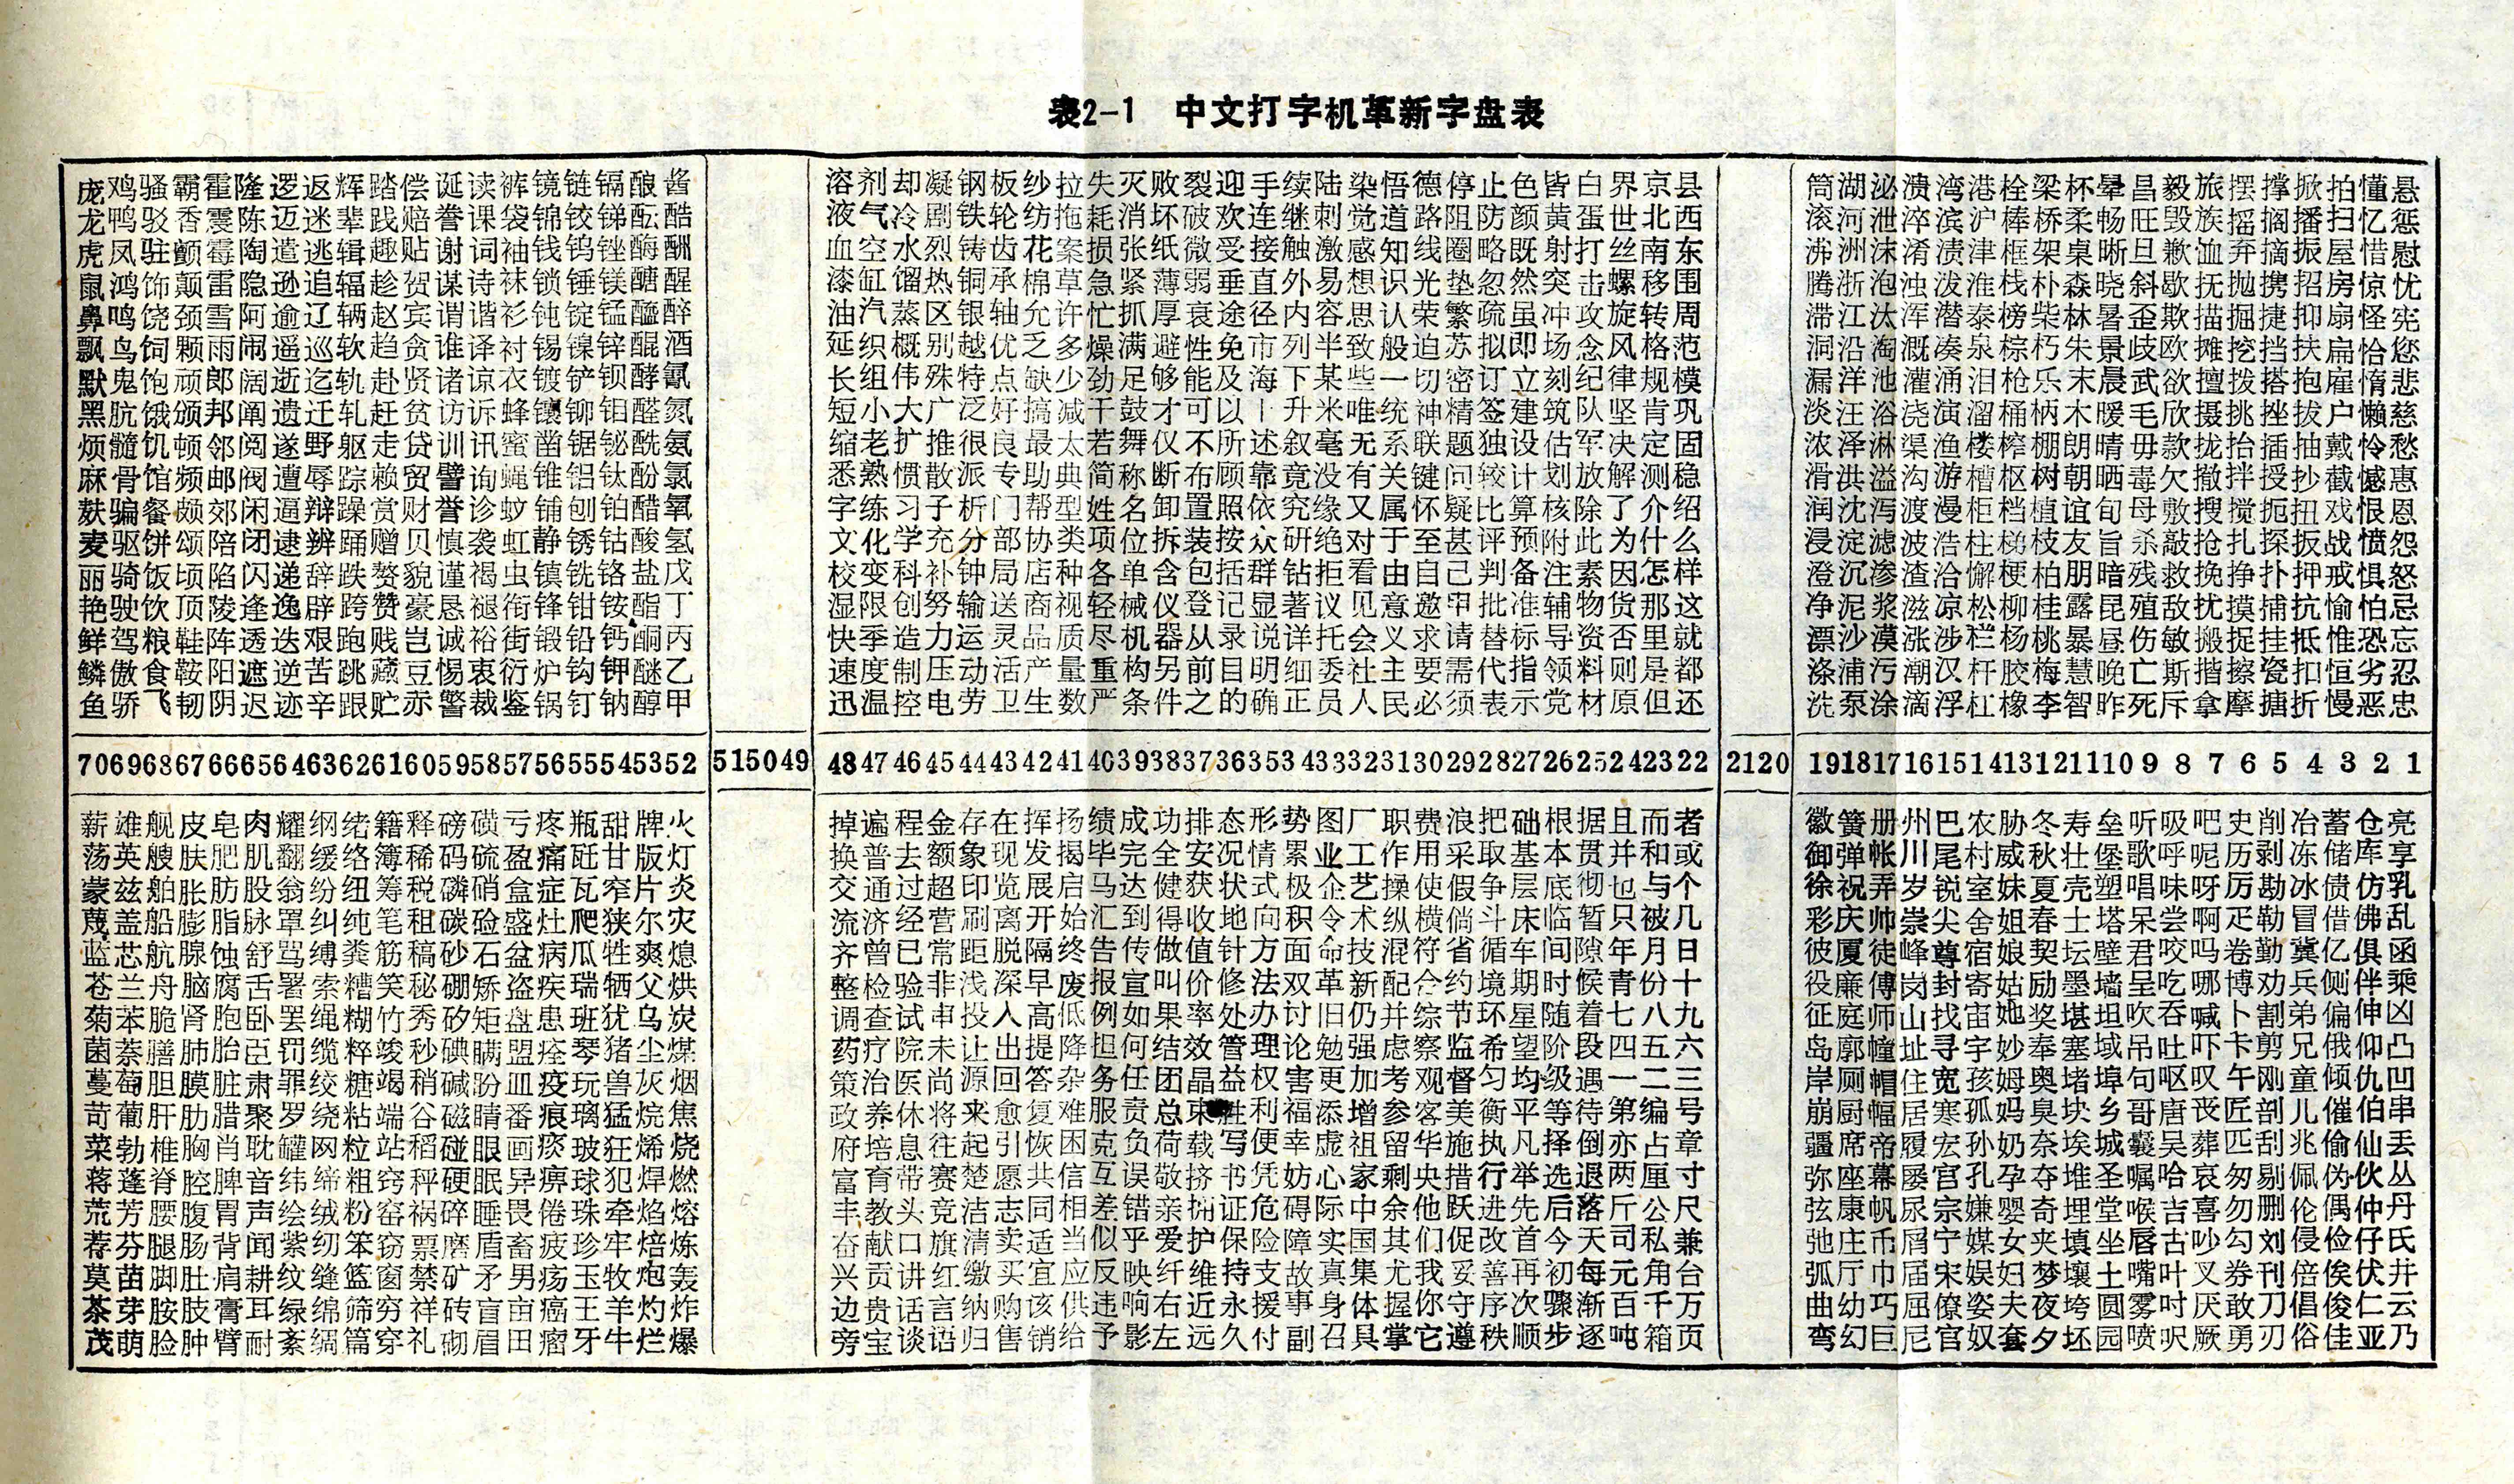 表2-1 中文打字机革新字盘表
庞鸡骚霸霍隆逻返辉踏偿诞读裤镜链镉酿酱 溶剂却凝钢板纱拉失灭败裂迎手续陆染悟德停止色皆白界京县 筒湖泌溃湾港栓梁杯晕昌毅旅摆撑掀拍懂悬
龙鸭驳香震陈迈迷辈践赔誊课袋锦铰锑酝酷 液气冷剧铁轮纺拖耗消坏破欢连继刺觉道路阻防颜黄蛋世北西 滚河泄淬滨沪棒桥柔畅旺毁族摇搁播扫忆惩
虎凤驻颤霉陶遣逃辑趣贴谢词袖钱钨锉酶酬 血空水烈铸齿花案损张纸微受接触激感知线圈略既射打丝南东 沸洲沫淆渍津框架桌晰旦歉恤弃摘振屋惜慰
鼠鸿饰颠雷隐逊追辐趁贺谋诗袜锁锤镁醣醒 漆缸馏热铜承棉草急紧薄弱垂直外易想识光垫忽然突击螺移围 腾浙泡浊泼淮栈朴森晓斜歇抚抛携招房惊忧
鼻鸣饶颈雪阿逾辽辆赵宾谓谐衫钝锭锰醯醉 油汽蒸区银轴允许忙抓厚衰途径内容思认荣繁疏虽冲攻旋转周 滞江汰浑潜泰榜柴林暑歪欺描掘捷抑扇怪宪
飘鸟饲颗雨闹遥巡软趋贪谁译衬锡镍锌醌酒 延织概别越优乏多燥满避性免市列半致般迫苏拟即场念风格范 洞沿淘溉凑泉棕朽朱景歧欧摊挖挡扶扁恰您
默鬼饱顽郎阔逝迄轨赴贤诸谅衣镀铲钡酵氰 长组伟殊特点缺少劲足够能及海下某些一切密订立刻纪律规模 漏洋池灌涌泪枪乐末晨武欲擅拨搭抱雇惰悲
黑肮饿颁邦阐遗迁轧赶贫访诉蜂镶铆钼醛氮 短小大广泛好搞减干鼓才可以上升米唯统神精签建筑队坚肯巩 淡汪浴浇演溜桶柄木暖毛欣摄挑挫拔户懒慈
烦髓饥顿邻阅遂野躯走贷训讯蜜凿锯铋酰氨 缩老扩推很良最太若舞仅不所述叙毫无系联题独设估军决定固 浓泽淋渠渔楼榨棚朗晴毋款拢抬插抽戴怜愁
麻骨馆频邮阀遭辱踪赖贸譬询蝇锥铝钛酚氯 悉熟惯散派专助典简称断布顾靠竟没有关键问较计划放解测稳 滑洪溢沟游槽枢树朝晒毒欠撤拌授抄截憾惠
麸骗餐颇郊闲逼辩躁赏财誉诊蚊铺刨铂醋氧 字练习子析门帮型姓名卸置照依究缘又属怀疑比算核除了介绍 润沈泻渡漫柜档植谊旬母敷搜搅扼扭戏恨恩
麦驱饼颂陪闭逮辨踊赠贝慎袭虹静锈钴酸氢 文化学充分部协类项位拆装按众研绝对于至甚评预附此为什么 浸淀滤波浩柱梯枝友旨杀敲抢扎探扳战愤怨
丽骑饭顷陷闪递辞跌赘貌谨褐虫镇铣铬盐戊 校变科补钟局店种各单含包括群钻拒看由自己判备注素因怎样 澄沉渗渣洽懈梗柏朋暗残救挽挣扑押戒惧怒
艳驶饮顶陵逢逸辟跨赞豪恳褪衔锋钳铵酯丁 湿限创努输送商视轻械仪登记显著议见意邀甲批准辅物货那这 净泥浆滋凉松柳桂露昆殖敌扰摸捕抗愉怕忌
鲜驾粮鞋阵透迭艰跑贱岂诚裕街锻铅钙酮丙 快季造力运灵品质尽机器从录说详托会义求请替标导资否里就 漂沙漠涨涉栏杨桃暴昼伤敏搬捉挂抵惟恐忘
鳞傲食鞍阳遮逆苦跳藏豆惕衷衍炉钩钾醚乙 速度制压动活产量重构另前目明细委社主要需代指领料则是都 涤浦污潮汉杆胶梅慧晚亡斯揩擦瓷扣恒劣忍
鱼骄飞韧阴迟迹辛跟贮赤警裁鉴锅钉钠醇甲 迅温控电劳卫生数严条件之的确正员人民必须表示党材原但还 洗泵涂滴浮杠橡李智昨死斥拿摩搪折慢恶忠
70696867666564636261605958575655545352 515049 484746454443424140393837363534333231302928272625242322 2120 19181716151413121110987654321
薪雄舰皮皂肉耀纲绪籍释磅磺亏疼瓶甜牌火 掉遍程金存在挥扬绩成功排态形势图厂职费浪把础根据且而者 徽簧册州巴农胁冬寿垒听吸吧史削冶蓄仓亮
荡英艘肤肥肌翻缓络簿稀码硫盈痛瓩甘版灯 换普去额象现发揭毕完全安况情累业工作用采取基本贯并和或 御弹帐川尾村威秋壮堡歌呼呢历剥冻储库享
蒙兹舶胀肪股翁纷纽筹税磷硝盒症瓦窄片炎 交通过超印览展启马达健获状式极企艺操使假争层底彻也与个 徐祝弄岁锐室妹夏壳塑唱味呀厉勘冰债仿乳
蔑盖船膨脂脉罩纠纯笔租碳硷盛灶爬狭尔灾 流济经营刷离开始汇到得收地向积令术纵横倘斗床临暂只被几 彩庆帅崇尖舍姐春士塔呆尝啊疋勒冒借佛乱
蓝芯航腺蚀舒骂缚粪筋稿砂石盆病瓜牲爽熄 齐曾已常距脱隔终告传做值针方面命技混符省循车间隙年月日 彼厦徒峰尊宿娘契坛壁君咬吗卷勤冀亿俱函
苍兰舟脑腐舌署索糟笑秘硼矫盗疾瑞牺父烘 整检验非浅深早废报宣叫价修法双革新配合约境期时候青份十 役廉傅岗封寄姑励墨墙呈吃哪博劝兵侧伴乘
菊苯脆肾胞卧罢绳糊竹秀矽矩盘患班犹乌炭 调查试申投入高低例如果率处办讨旧仍并综节环星随着七八九 征庭师山找宙她奖堪坦吹吞喊卜割弟偏伸凶
菌萘膳肺胎臣罚缆粹竣秒碘瞒盟痊琴猪尘煤 药疗院未让出提降担何结效管理论勉强虑察监希望阶段四五六 岛廓幢址寻宇妙奉塞域吊吐吓卡剪兄俄仰凸
蔓萄胆膜脏肃罪绞糖竭稍碱盼血疫玩兽灰烟 策治医尚源回答杂务任团晶益权害更加考观督匀均级遇一二三 岸厕帽住宽孩姆奥堵埠句呕叹午刚童倾仇凹
苛葡肝肋腊聚罗绕粘端谷磁睛番痕璃猛烷焦 政养休将来愈复难服责总束胜利福添增参客美衡平等待第编号 崩厨幅居寒孤妈臭块乡哥唐丧匠剖儿催伯串
菜勃椎胸肖耽罐网粒站稻碰眼画痰玻狂烯烧 府培息往起引恢困克负荷载写便幸虚祖留华施执凡择倒亦占章 疆席帝履宏孙奶奈埃城囊吴葬匹刮兆偷仙丢
蒋蓬脊腔脾音纬缔粗窍秤硬眠异痹球犯焊燃 富育带赛楚愿共信互误敬挤书凭妨心家剩央措行举选退两厘寸 弥座幕屡宫孔孕夺堆圣嘱哈哀匆剔佩伪伙丛
荒芳腰腹胃声绘绒粉窑祸碎睡畏倦珠牵焰熔 丰教头竞洁志同相差错亲拥证危碍际中余他跃进先后落斤公尺 弦康帆尿宗嫌婴奇埋堂喉吉喜勿删伦偶仲丹
荐芬腿肠背闻紫纫笨窃票磨盾畜疲珍牢焙炼 奋献口旗清卖适当似乎爱护保险障实国其们促改首今天司私兼 弛庄币屑宁媒女夹填坐唇古吵勾刘侵俭仔氏
莫苗脚肚肩耕纹缝篮窗禁矿矛男疡玉牧炮轰 兴贡讲红缴买宜应反映纤维持支故真集尤我妥善再初每元角台 弧厅巾届宋娱妇梦壤土嘴叶叉券刊倍俟伏井
茶芽胺肢膏耳绿绵筛穷祥砖盲亩癌王羊灼炸 边贵话言纳购该供违响右近永援事身体握你守序次骤渐百千万 曲幼巧屈僚姿夫夜垮圆雾吋厌敢刀倡俊仁云
茂萌脸肿臂耐紊绸篇穿礼砌眉田瘤牙牛烂爆 旁宝谈语归售销给予影左远久付副召具掌它遵秩顺步逐吨箱页 弯幻巨尼官奴套夕坯园喷呎厥勇刃俗佳亚乃